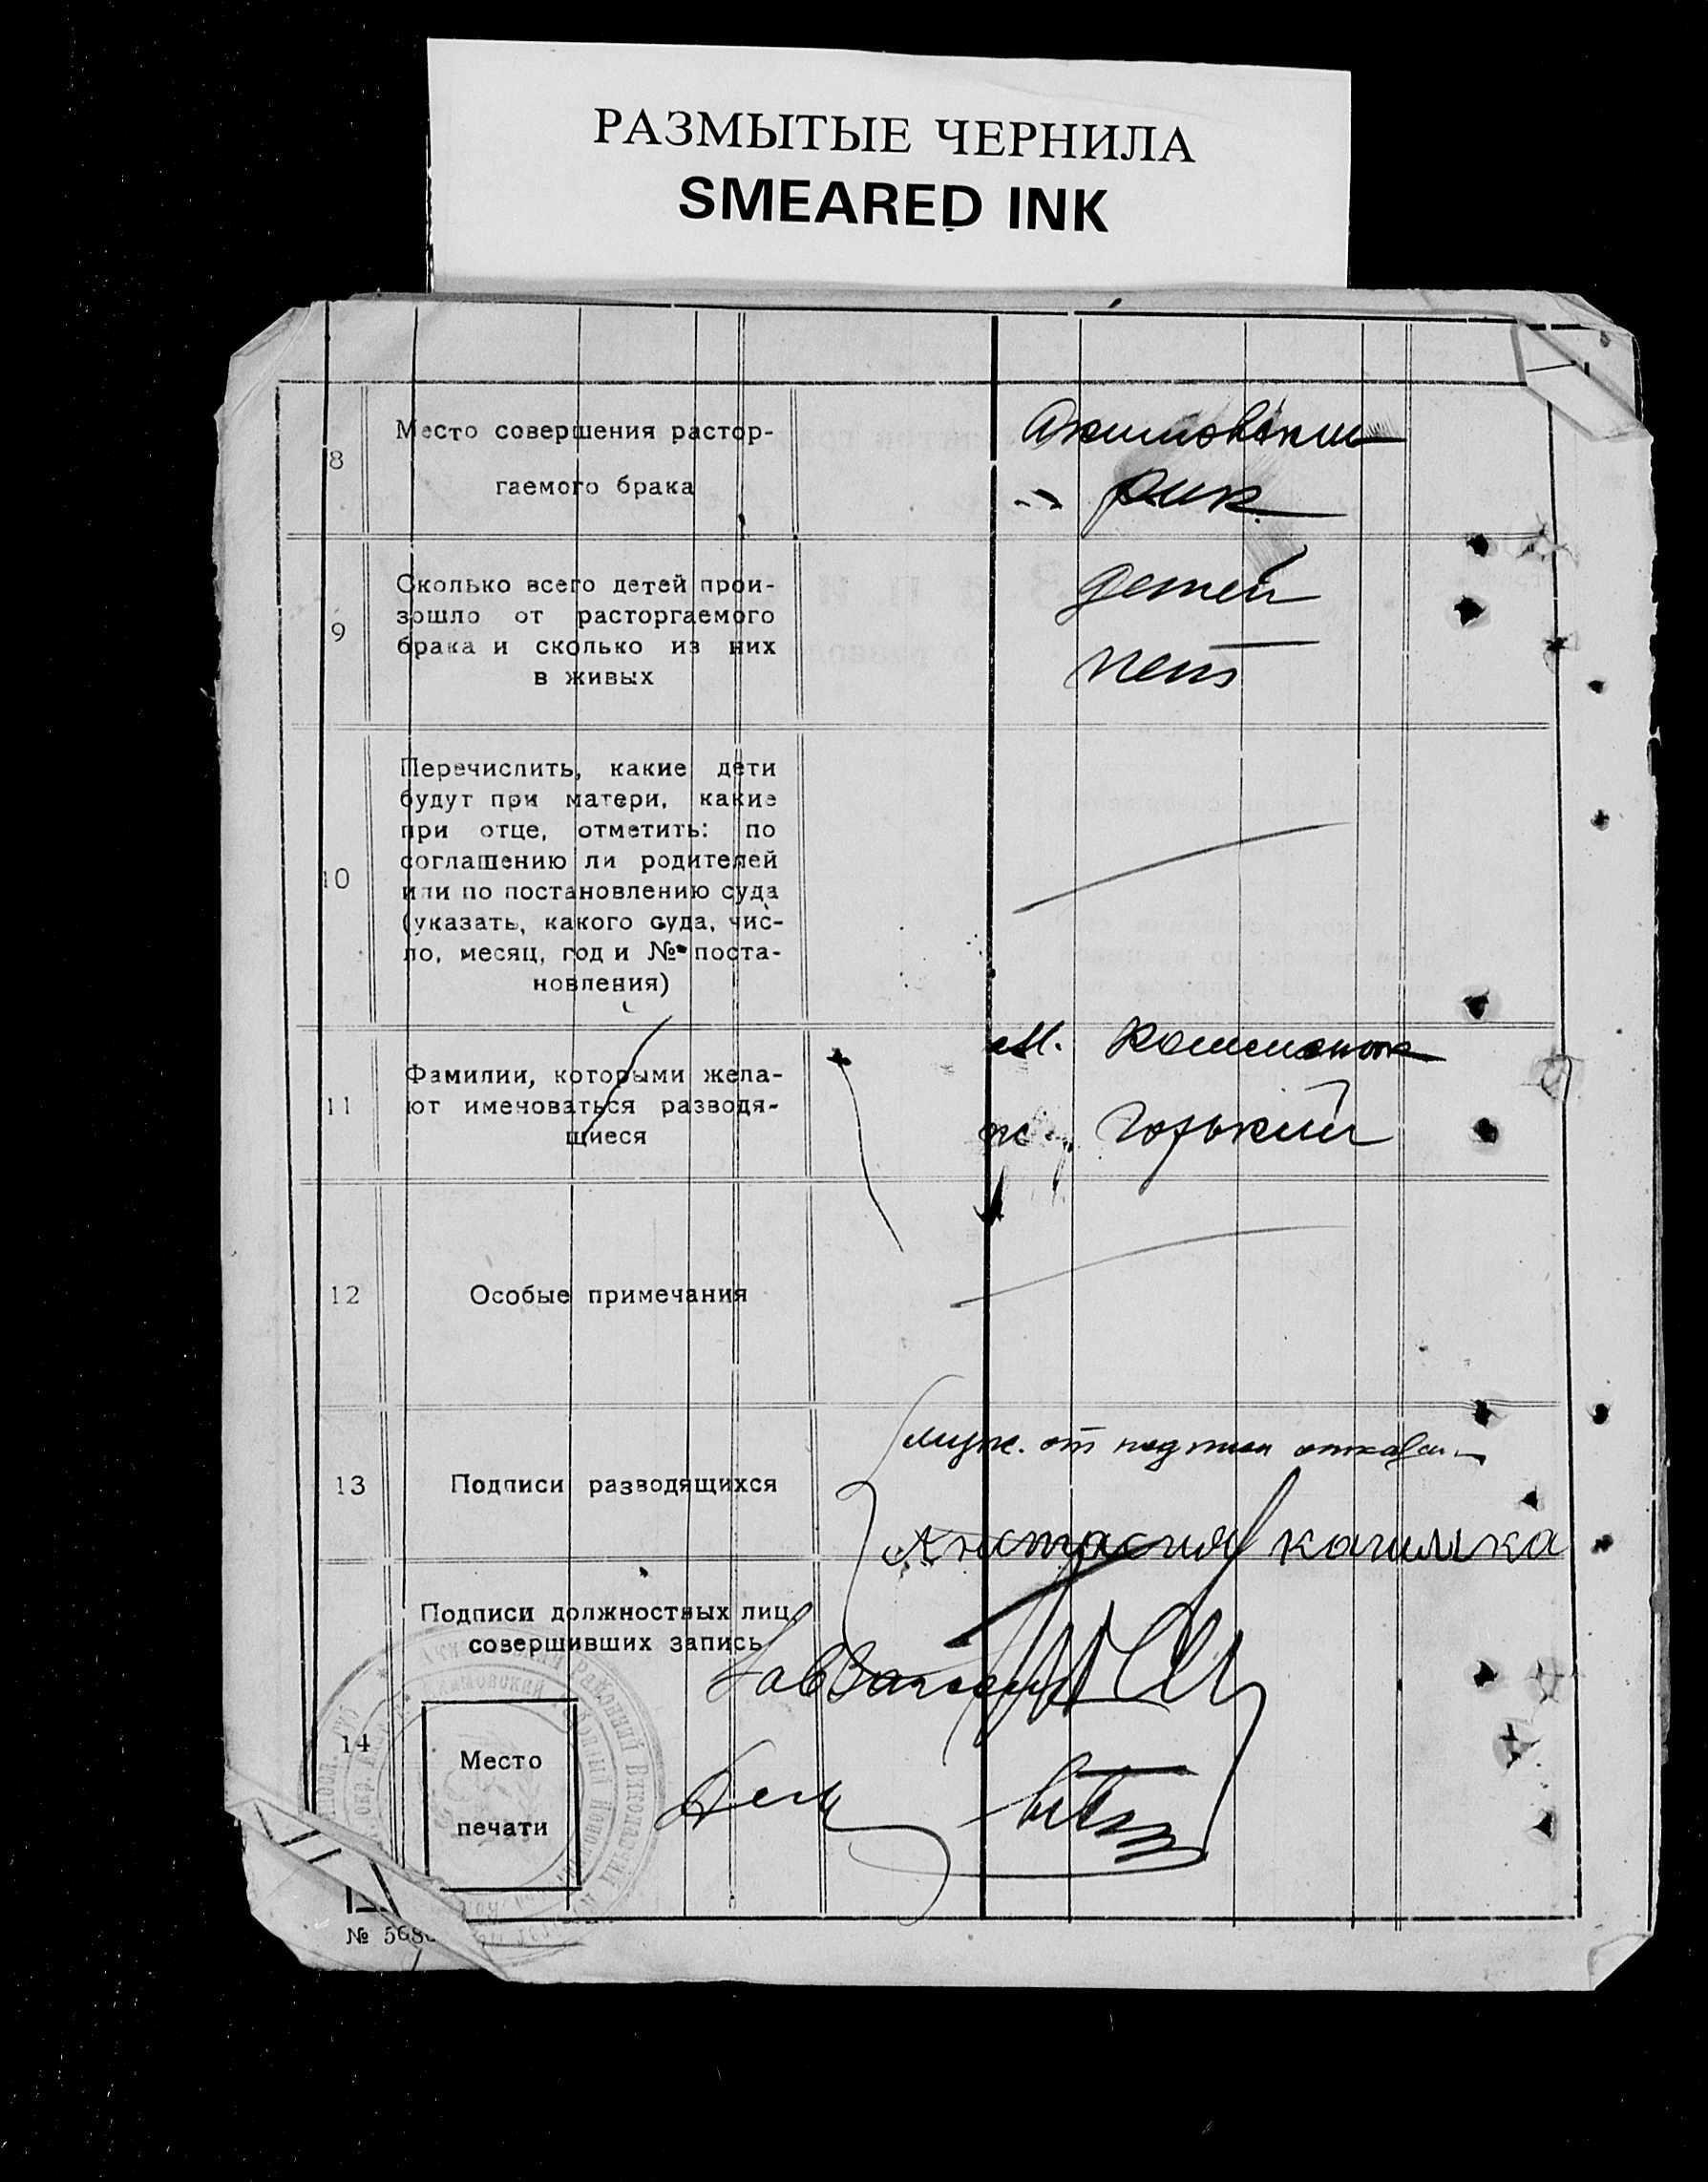 РАЗМЫТЫЕ ЧЕРНИЛА
SMEARED INK
8
Место совершения растор-
гаемого брака
Акимовский
рик.
9
Сколько всего детей прои-
зошло от расторгаемого
брака и сколько из них
в живых
детей
нет
10
Перечислить, какие дети
будут при матери, какие
при отце, отметить: по
соглашению ли родителей
или по постановлению суда
(указать, какого суда, чис-
ло, месяц, год и № поста-
новления)
11
Фамилии, которыми жела-
ют именоваться разводя-
щиеся
м.
ж. Горький
12
Особые примечания
13
Подписи разводящихся
муж. от подписи
Анастасия
14
Подписи должностных лиц,
совершивших запись
Место
печати
№ 568